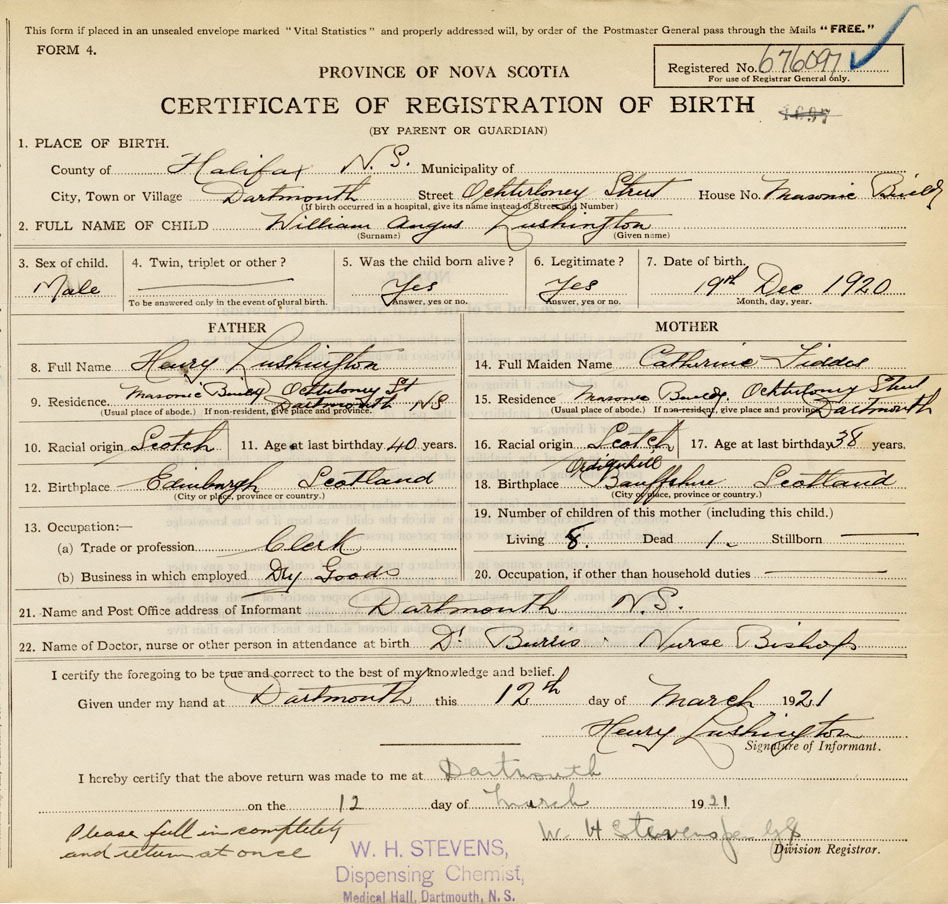 This form if placed in an unsealed envelope marked "Vital Statistics" and properly addressed will, by order of the Postmaster General pass through the Mails "FREE."
FORM 4.
Registered No. 676097
For use of Registrar General only.
PROVINCE OF NOVA SCOTIA
CERTIFICATE OF REGISTRATION OF BIRTH
(BY PARENT OR GUARDIAN)
1. PLACE OF BIRTH.
County of Halifax N.S. Municipality of
City, Town or Village Dartmouth Street Ochterloney Street House No. Masonic Buildg
(If birth occurred in a hospital, give its name instead of Street and Number)
2. FULL NAME OF CHILD William Angus Lushington
(Surname) (Given name)
3. Sex of child. 4. Twin, triplet or other ? 5. Was the child born alive ? 6. Legitimate ? 7. Date of birth.
Male Yes Yes 19th Dec 1920
To be answered only in the event of plural birth. Answer, yes or no. Answer, yes or no. Month, day, year.
FATHER
8. Full Name Henry Lushington
9. Residence Masonic Buildg Ochterloney St
Dartmouth NS
(Usual place of abode.) If non-resident, give place and province.
10. Racial origin Scotch 11. Age at last birthday 40 years.
12. Birthplace Edinburgh Scotland
(City or place, province or country.)
13. Occupation:—
(a) Trade or profession Clerk
(b) Business in which employed Dry Goods
MOTHER
14. Full Maiden Name Catherine Fiddes
15. Residence Masonic Buildg. Ochterloney Street
Dartmouth
(Usual place of abode.) If non-resident, give place and province
16. Racial origin Scotch 17. Age at last birthday 38 years.
Ordiquhill
18. Birthplace Banffshire Scotland
(City or place, province or country.)
19. Number of children of this mother (including this child.)
Living 8. Dead 1. Stillborn
20. Occupation, if other than household duties
21. Name and Post Office address of Informant Dartmouth N.S.
22. Name of Doctor, nurse or other person in attendance at birth Dr Burris Nurse Bishop
I certify the foregoing to be true and correct to the best of my knowledge and belief.
Given under my hand at Dartmouth this 12th day of March 1921
Henry Lushington
Signature of Informant.
I hereby certify that the above return was made to me at Dartmouth
on the 12 day of March 1921
W. H Stevens
Division Registrar.
Please fill in completely
and return at once
W. H. STEVENS,
Dispensing Chemist,
Medical Hall, Dartmouth, N. S.